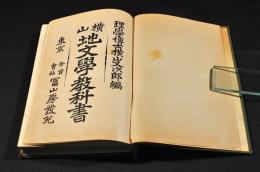 理學博士横山又次郎編
横山
地文學教科書
東京
合資
會社
冨山房發兌